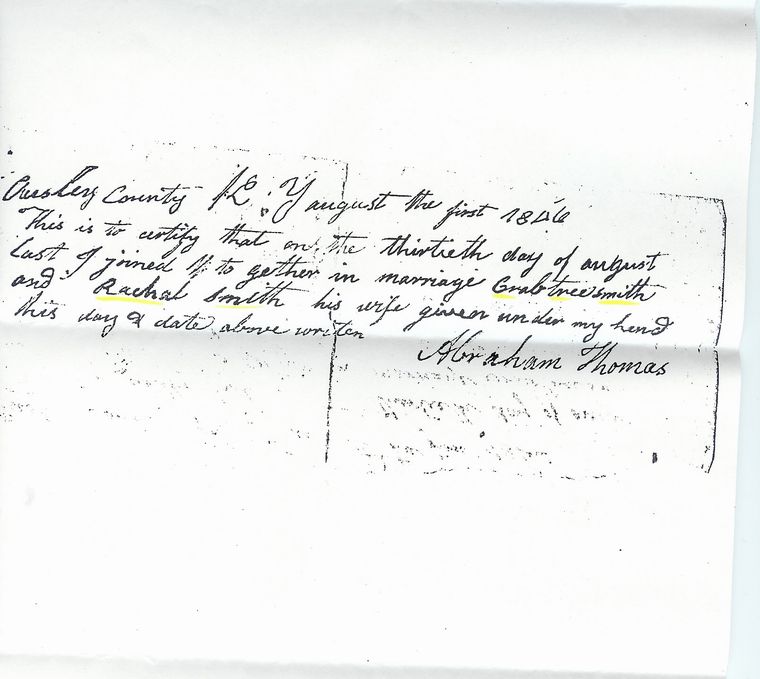 Owsley County August the first 1846
This is to certify that on the thirtieth day of august
last I joined to gether in marriage Crabtree Smith
and Rachal Smith his wife given under my hand
this day & date above writen
Abraham Thomas